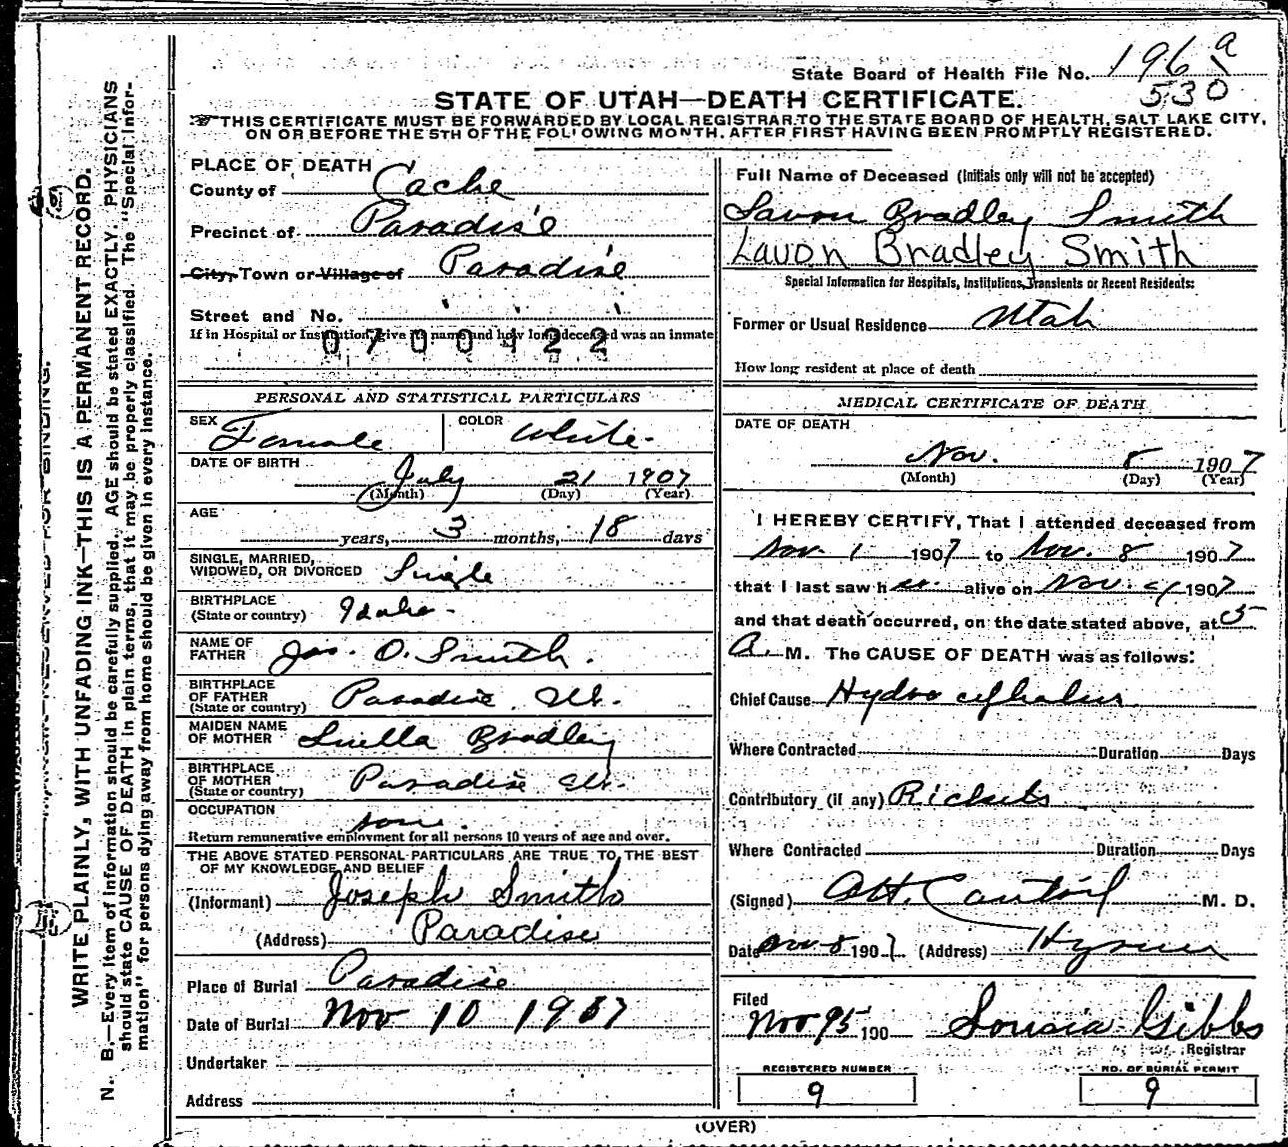 State Board of Health File No. 196 a
530
STATE OF UTAH—DEATH CERTIFICATE.
THIS CERTIFICATE MUST BE FORWARDED BY LOCAL REGISTRAR TO THE STATE BOARD OF HEALTH, SALT LAKE CITY,
ON OR BEFORE THE 5TH OF THE FOLLOWING MONTH, AFTER FIRST HAVING BEEN PROMPTLY REGISTERED.
WRITE PLAINLY, WITH UNFADING INK—THIS IS A PERMANENT RECORD.
N. B.—Every item of information should be carefully supplied. AGE should be stated EXACTLY. PHYSICIANS
should state CAUSE OF DEATH in plain terms, that it may be properly classified. The "Special Infor-
mation" for persons dying away from home should be given in every instance.
PLACE OF DEATH
County of Cache
Precinct of Paradise
City, Town or Village of Paradise
Street and No.
If in Hospital or Institution, give its name and how long deceased was an inmate
0700122
PERSONAL AND STATISTICAL PARTICULARS
SEX Female COLOR White
DATE OF BIRTH July 21 1907
(Month) (Day) (Year)
AGE
years, 3 months, 18 days
SINGLE, MARRIED,
WIDOWED, OR DIVORCED Single
BIRTHPLACE
(State or country) Idaho
NAME OF
FATHER Jos. O. Smith.
BIRTHPLACE
OF FATHER
(State or country) Paradise Ut.
MAIDEN NAME
OF MOTHER Luella Bradley
BIRTHPLACE
OF MOTHER
(State or country) Paradise Ut.
OCCUPATION
Return remunerative employment for all persons 10 years of age and over.
THE ABOVE STATED PERSONAL PARTICULARS ARE TRUE TO THE BEST
OF MY KNOWLEDGE AND BELIEF
(Informant) Joseph Smith
(Address) Paradise
Place of Burial Paradise
Date of Burial Nov 10 1907
Undertaker
Address
Full Name of Deceased (Initials only will not be accepted)
Lavon Bradley Smith
Lavon Bradley Smith
Special Information for Hospitals, Institutions, Transients or Recent Residents:
Former or Usual Residence Utah
How long resident at place of death
MEDICAL CERTIFICATE OF DEATH
DATE OF DEATH
Nov. 8 1907
(Month) (Day) (Year)
I HEREBY CERTIFY, That I attended deceased from
Nov. 1 1907 to Nov. 8 1907
that I last saw h er alive on Nov. 1907
and that death occurred, on the date stated above, at 5
A. M. The CAUSE OF DEATH was as follows:
Chief Cause Hydro cephalus
Where Contracted Duration Days
Contributory (if any) Rickets
Where Contracted Duration Days
(Signed) M. D.
Date Nov 8 1907 (Address) Hyrum
Filed
Nov 190 Gibbs
Registrar
REGISTERED NUMBER
9
NO. OF BURIAL PERMIT
9
(OVER)